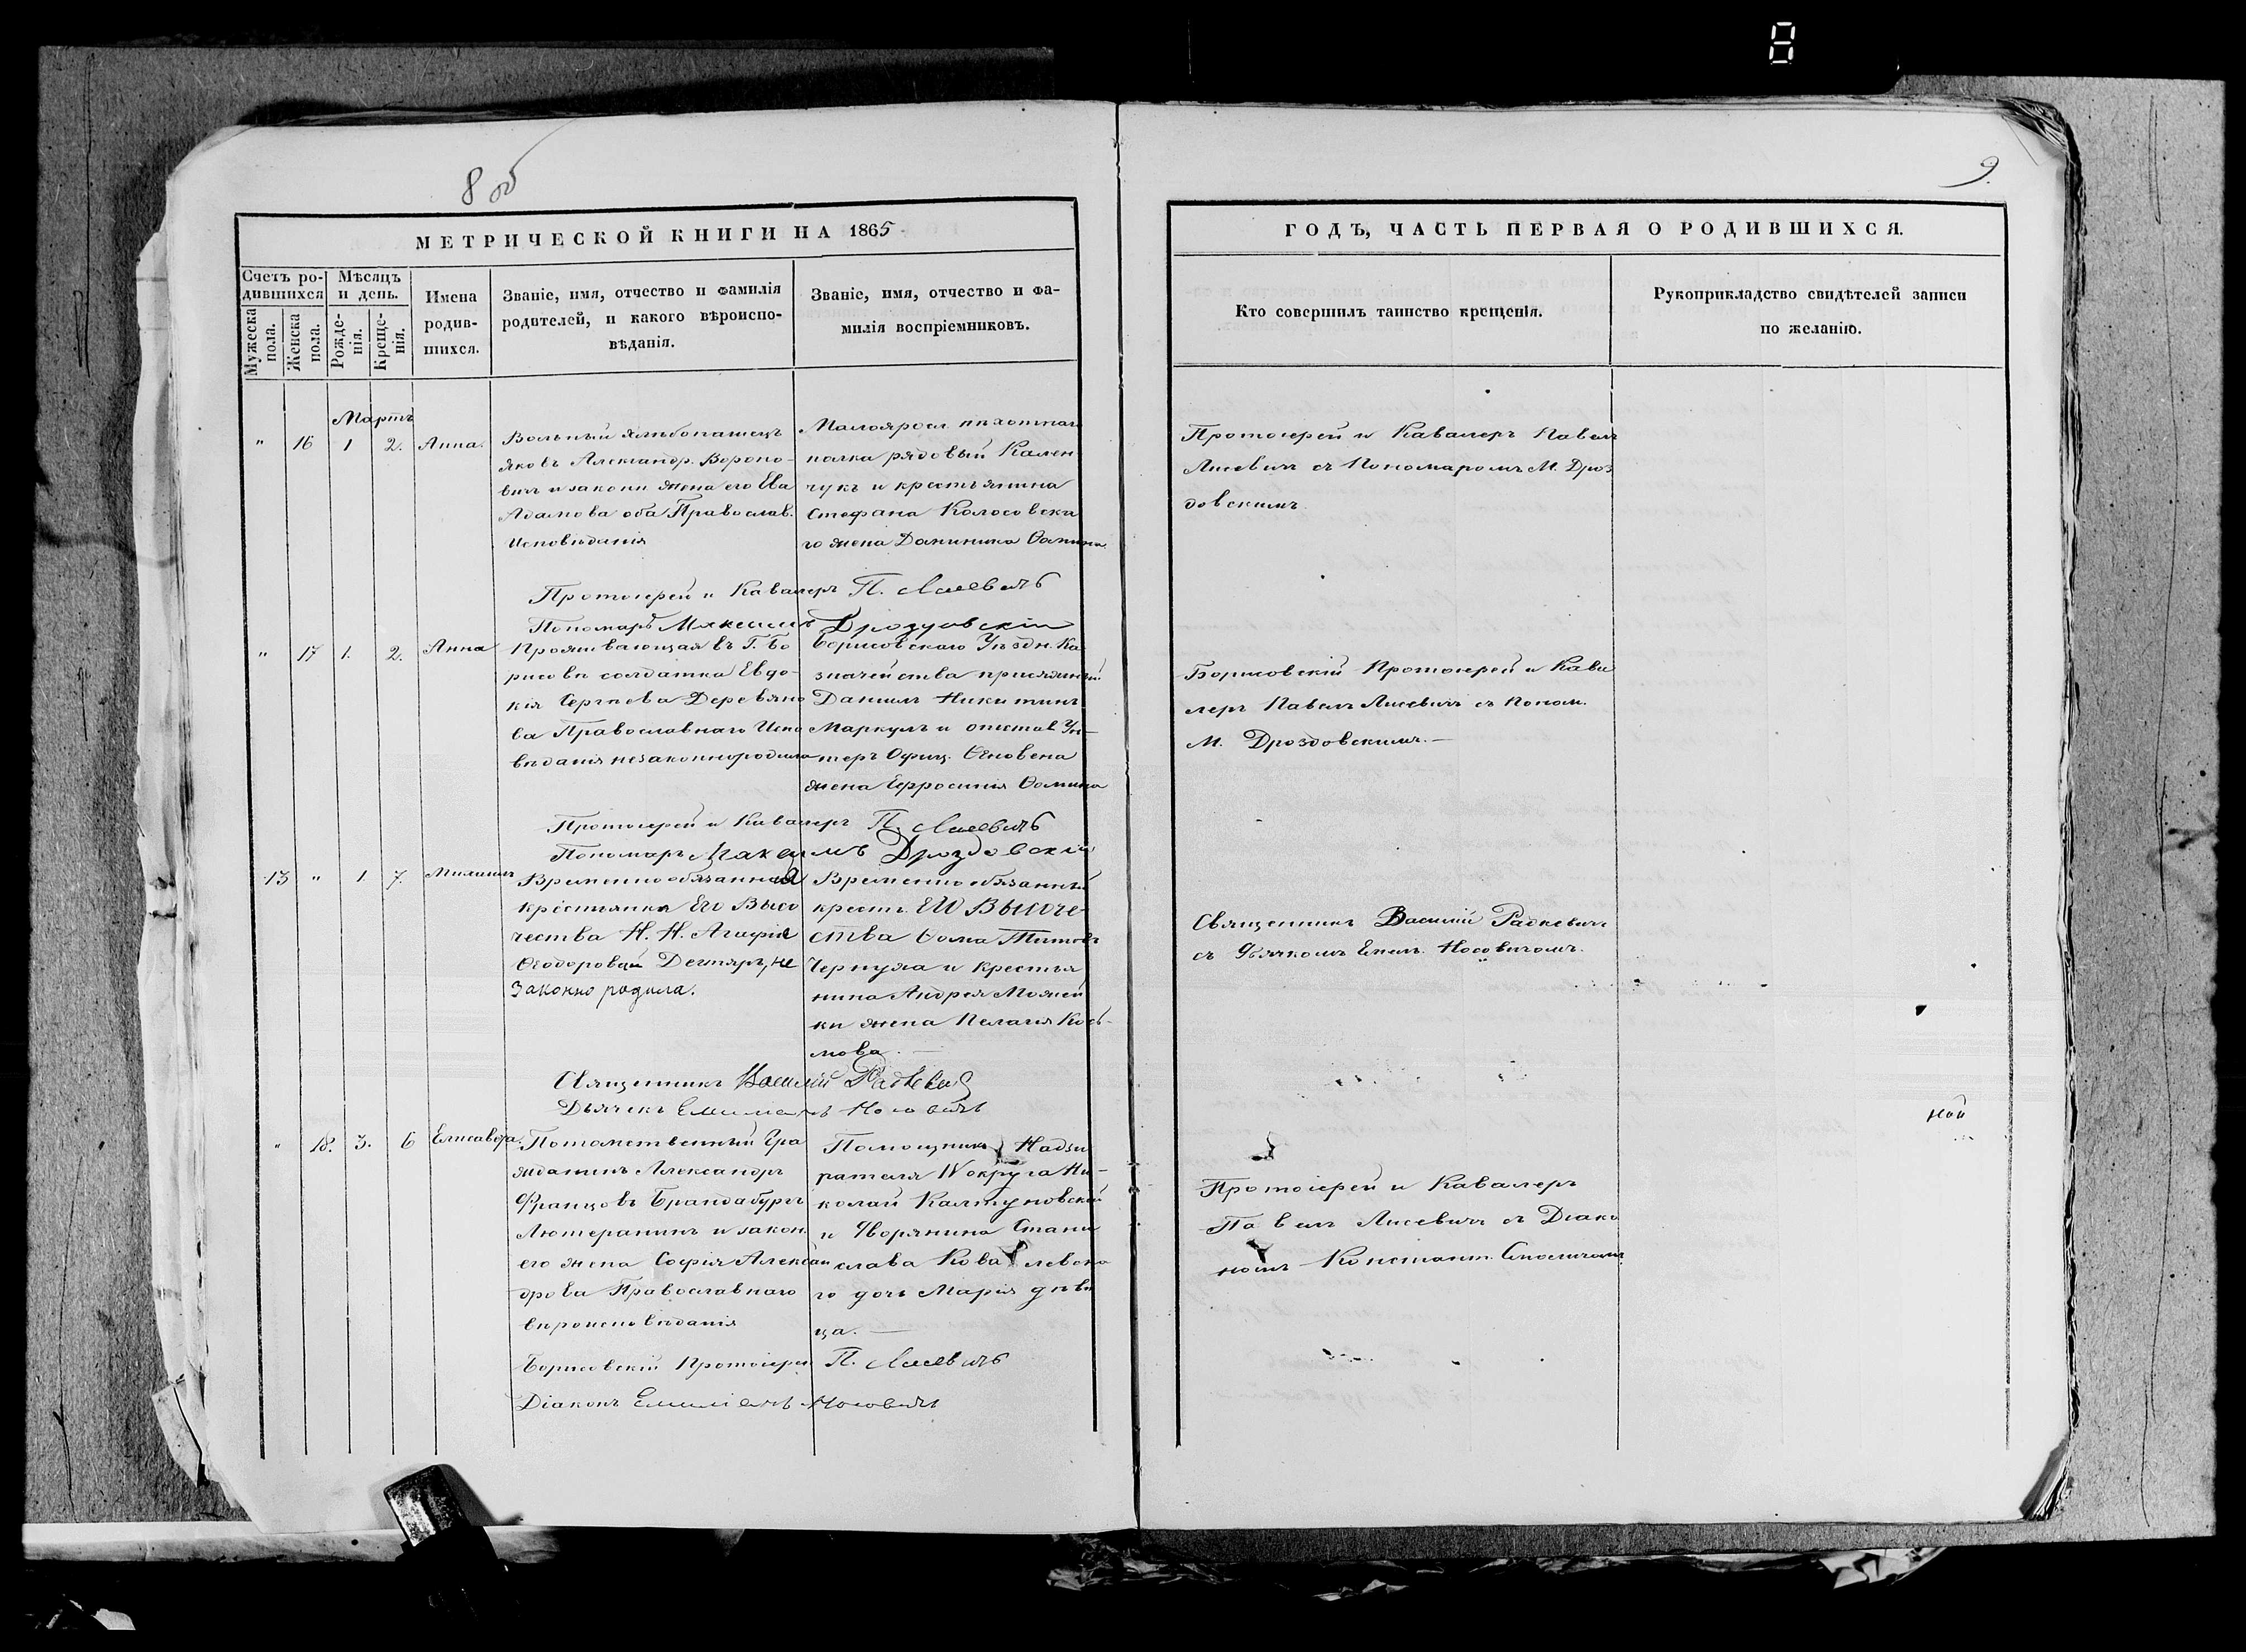 8
8 об
9.
МЕТРИЧЕСКОЙ КНИГИ НА 1865
ГОДЪ, ЧАСТЬ ПЕРВАЯ О РОДИВШИХСЯ.
Счетъ ро-
дившихся
Мужеска
пола.
Женска
пола.
Мѣсяцъ
и день.
Рожде-
нія.
Креще-
нія.
Имена
родив-
шихся.
Званіе, имя, отчество и фамилія
родителей, и какого вѣроиспо-
вѣданія.
Званіе, имя, отчество и фа-
милія воспріемниковъ.
Кто совершилъ таинство крещенія.
Рукоприкладство свидѣтелей записи
по желанію.
Мартъ
" 16 1 2. Анна.
Вольный хлѣбопашецъ
Яковъ Александр. Вороно-
вичъ и законн жена его Ева
Адамова оба Православ.
Исповѣданія
Малояросл пѣхотнаго
полка рядовый Кален
чукъ и крестьянина
Стефана Колосовска
го жена Доминика Фомина.
Протоіерей и Кавалеръ Павелъ
Лисевичъ съ Пономаромъ М. Дроз
довскимъ
Протоіерей и Кавалеръ П. Лисевичъ
Пономарь Максимъ Дроздовскій
" 17 1. 2. Анна
Проживающая въ Г. Бо
рисовѣ солдатка Евдо-
кія Сергѣева Деревяно
ва Православнаго Испо
вѣданія незаконнородила
Борисовскаго Уѣздн. Ка
значейства присяжный
Даніилъ Никитинъ
Маркулъ и отстав Ун-
теръ Офиц.
жена Ефросинія Фомина
Борисовскій Протоіерей и Кава
леръ Павелъ Лисевичъ съ Поном.
М. Дроздовскимъ.—
Протоіерей и Кавалеръ П. Лисевичъ
Пономарь Максимъ Дроздовскій
13 " 1 7.
Временно обязанная
крестьянка Его Высо
чества Н. Н. Агафія
Ѳеодоровая Дегтяръ, не
законно родила.
Временно обязанный
крест. Его Высоче-
ства Фома Титовъ
Чернуха и крестья
нина Андрея Можей
ки жена Пелагія Кось-
мова. —
Священникъ Василій Радкевичъ
съ Дьячкомъ Емил. Носовичомъ.
Священникъ Василій Радкевичъ
Дьячекъ Емиліанъ Носовичъ
" 18. 3. 6 Елисавефа.
Потомственный Гра
жданинъ Александръ
Францовъ Брандабургъ
Лютеранинъ и закон.
его жена Софія Алексан
дрова Православнаго
вѣроисповѣданія
Помощникъ Надзи
рателя IV округа Ни-
колай Калтуновскій
и Дворянина Стани
слава Ковалевска
го дочь Марія дѣви
ца. —
ной
Протоіерей и Кавалеръ
Павелъ Лисевичъ съ Діако
номъ Констант.
Борисовскій Протоіерей П. Лисевичъ
Діаконъ Емиліанъ Носовичъ